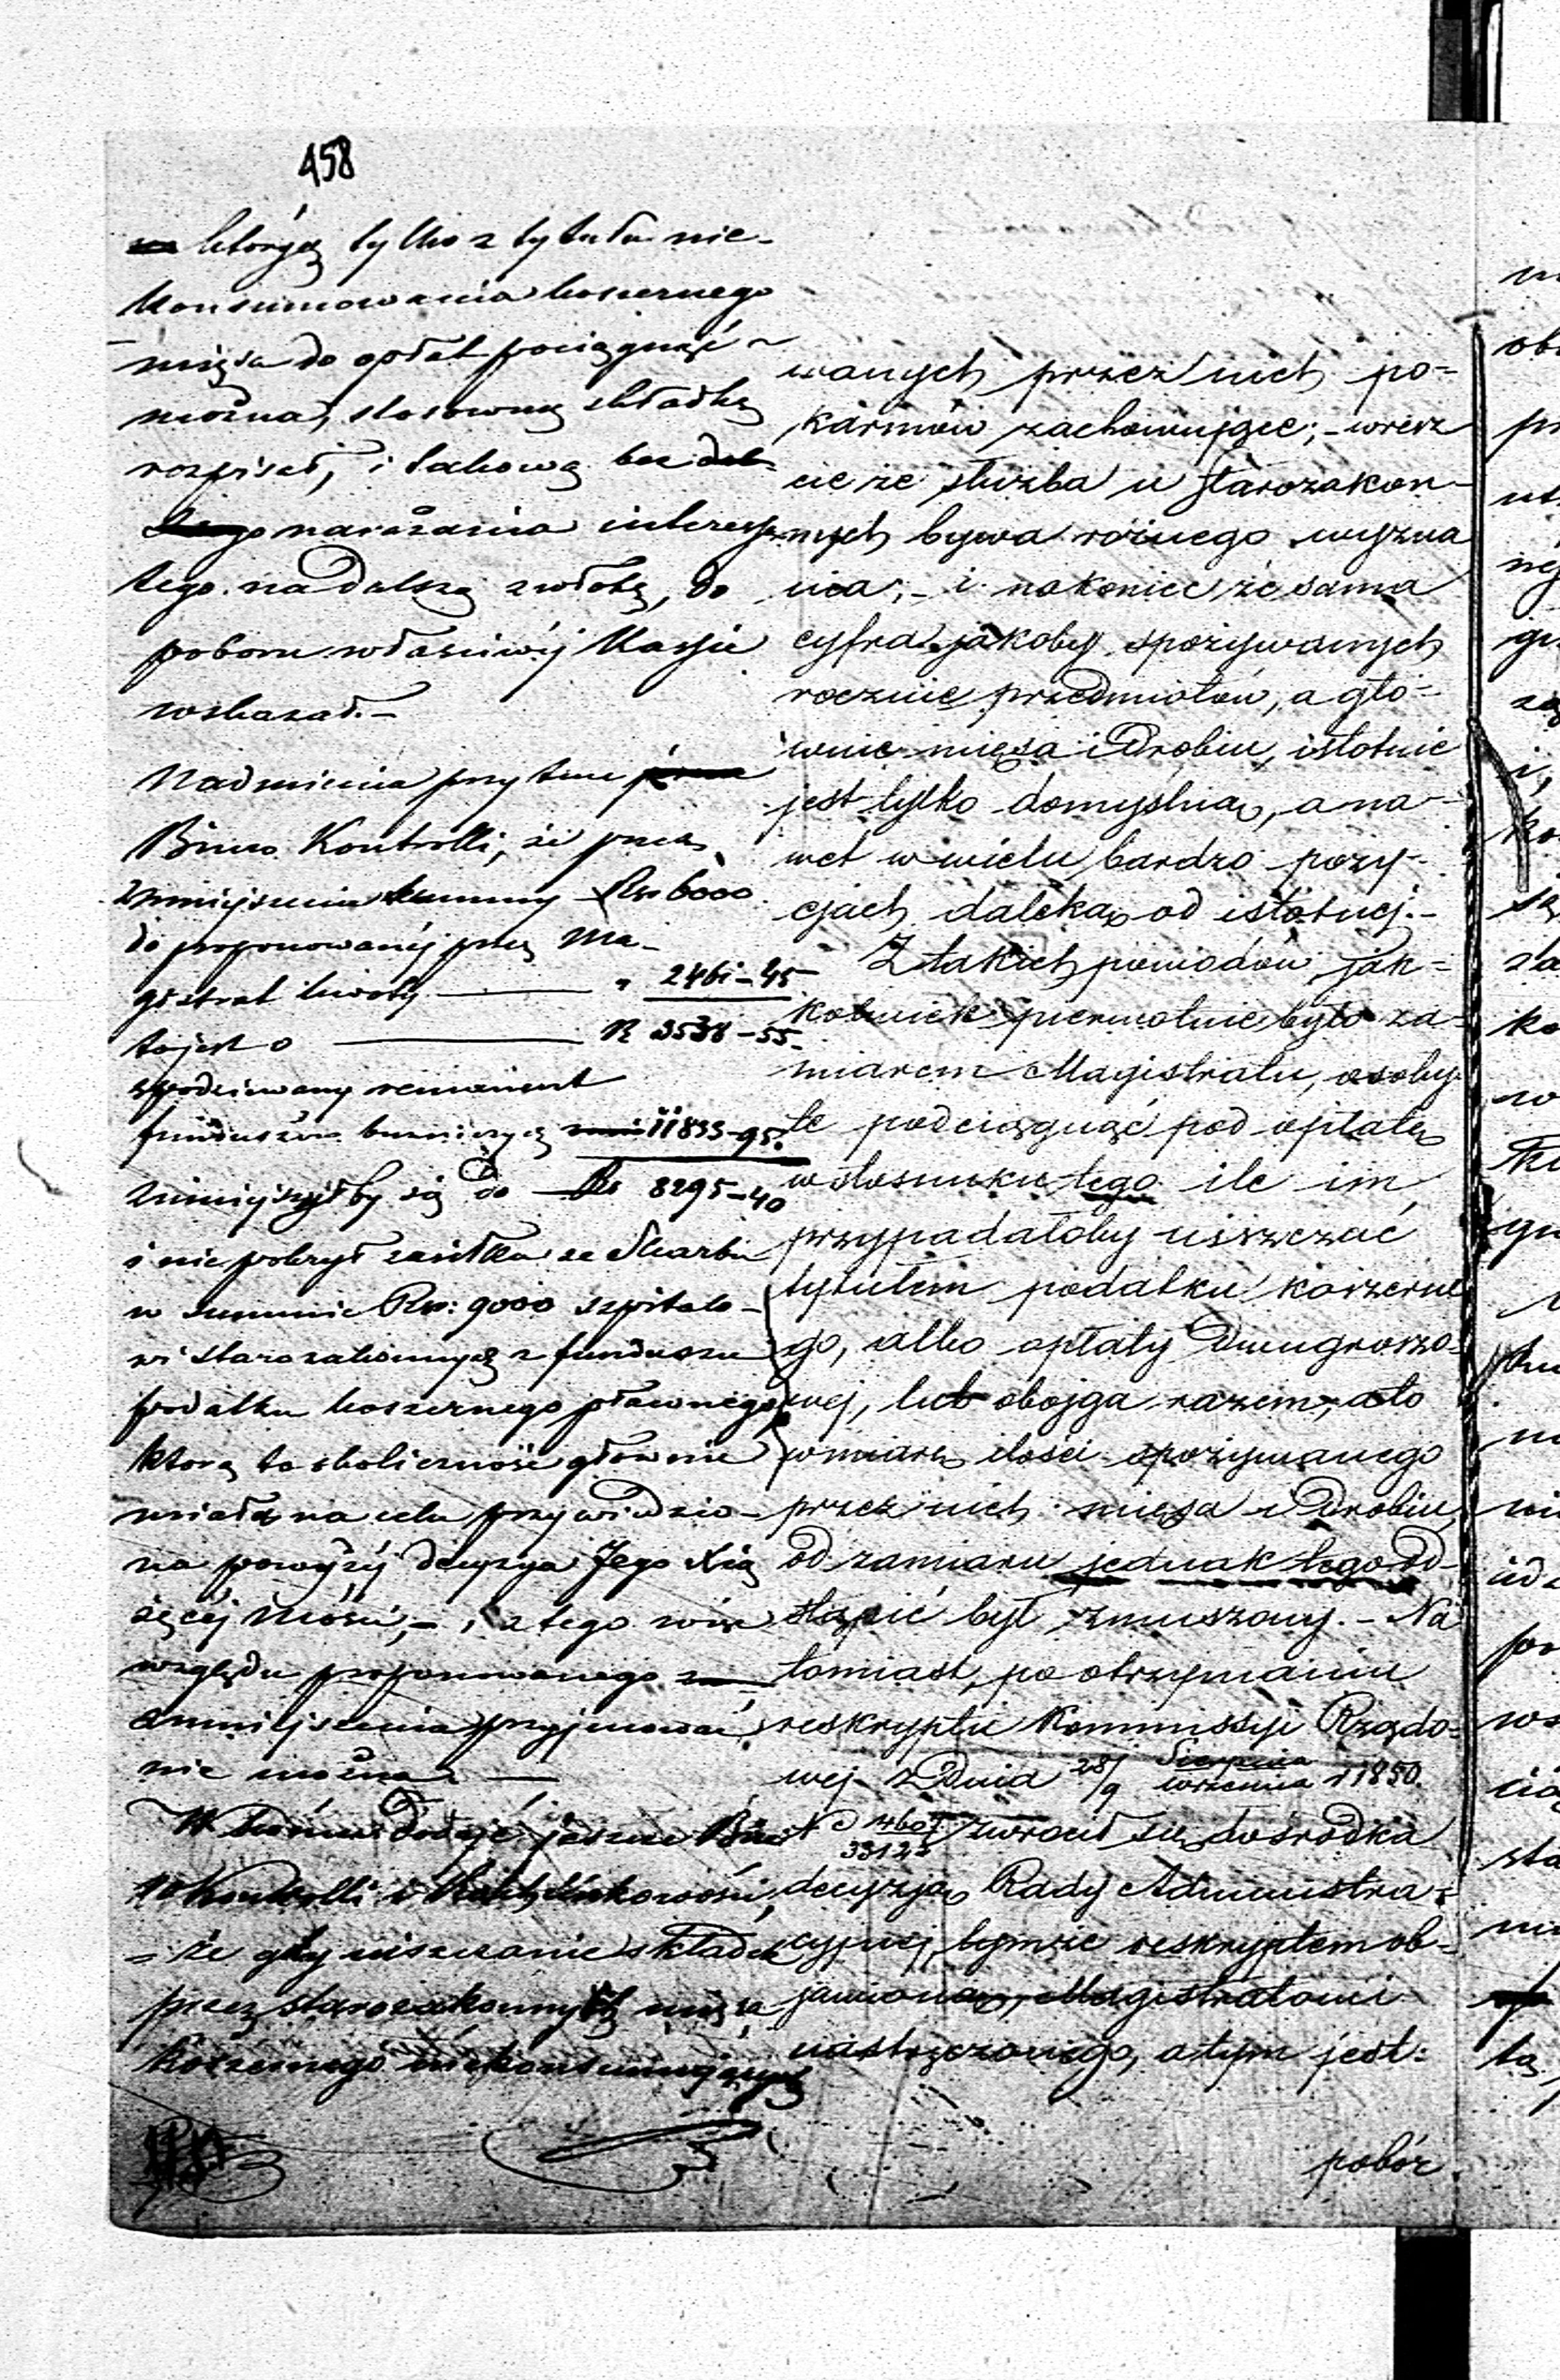 458
których tylko z tytułu nie-
konsumowania koszernego
mięsa do opłat pociągnąć
można, stosowną składkę
rozpisał, i takową bez dal-
narażania interesu
tego na dalszą zwłokę, do
poboru właściwéj Kassie
wskazał.-
Nadmienia przytem
Biuro Kontrolli, że przez
zmniejszenie summy Rsr 6000
do proponowanéj przez Ma-
gistrat kwoty — " 2461-45
to jest o — R 3538-55.
spodziewany remanent
funduszów bużniczych 11833-95.
zmniejszyłby się do — Rs 8295-40
i nie pokrył zasiłku ze Skarbu
w summie Rsr: 9000 szpitalo-
wi starozakonnych z funduszu
podatku koszernego pławnego
którą to okoliczność głównie
miała na celu przywiedzio-
na powyżéj decyzya Jego Xią
żęcéj Mości,- i z tego więc
względu proponowanego
zmniejszenia przyjmować
nie można. —
W końcu dodaje jeszcze Biu-
ro Kontrolli i
- że gdy uiszczanie składek
przez starozakonnych mięsa
koszernego niekonsumujących
wanych przez nich po-
karmów zachowujące;- wresz
cie że służba u starozakon-
nych bywa różnego wyzna
nia;- i nakoniec że sama
cyfra jakoby spożywanych
rocznie przedmiotów, a głó-
wnie mięsa i Drobiu, istotnie
jest tylko domyślną, a na-
wet w wielu bardzo pozy-
cjach daleką od istotnej.-
Z takich powodów, jak-
kolwiek pierwotnie było za-
miarem Magistratu, osoby
te podciągnąć pod opłatę
w stosunku tego ile im
przypadałoby uiszczać
tytułem podatku koszerne
go, albo opłaty Dwugroszo-
wej, lub obojga razem, a to
w miarę ilości spożywanego
przez nich mięsa i Drobiu,
od zamiaru jednak tego od-
stąpić był zmuszony. - Na
tomiast, po otrzymaniu
reskryptu Kommissji Rządo-
wej z Dnia 28/9 Sierpnia września r 1850.
N 4607/33122 zwrócił się do środka
decyzją Rady Administra-
cyjnej, tymże reskryptem ob-
jawioną, Magistratowi
nastręczonego, a tym jest:
pobór